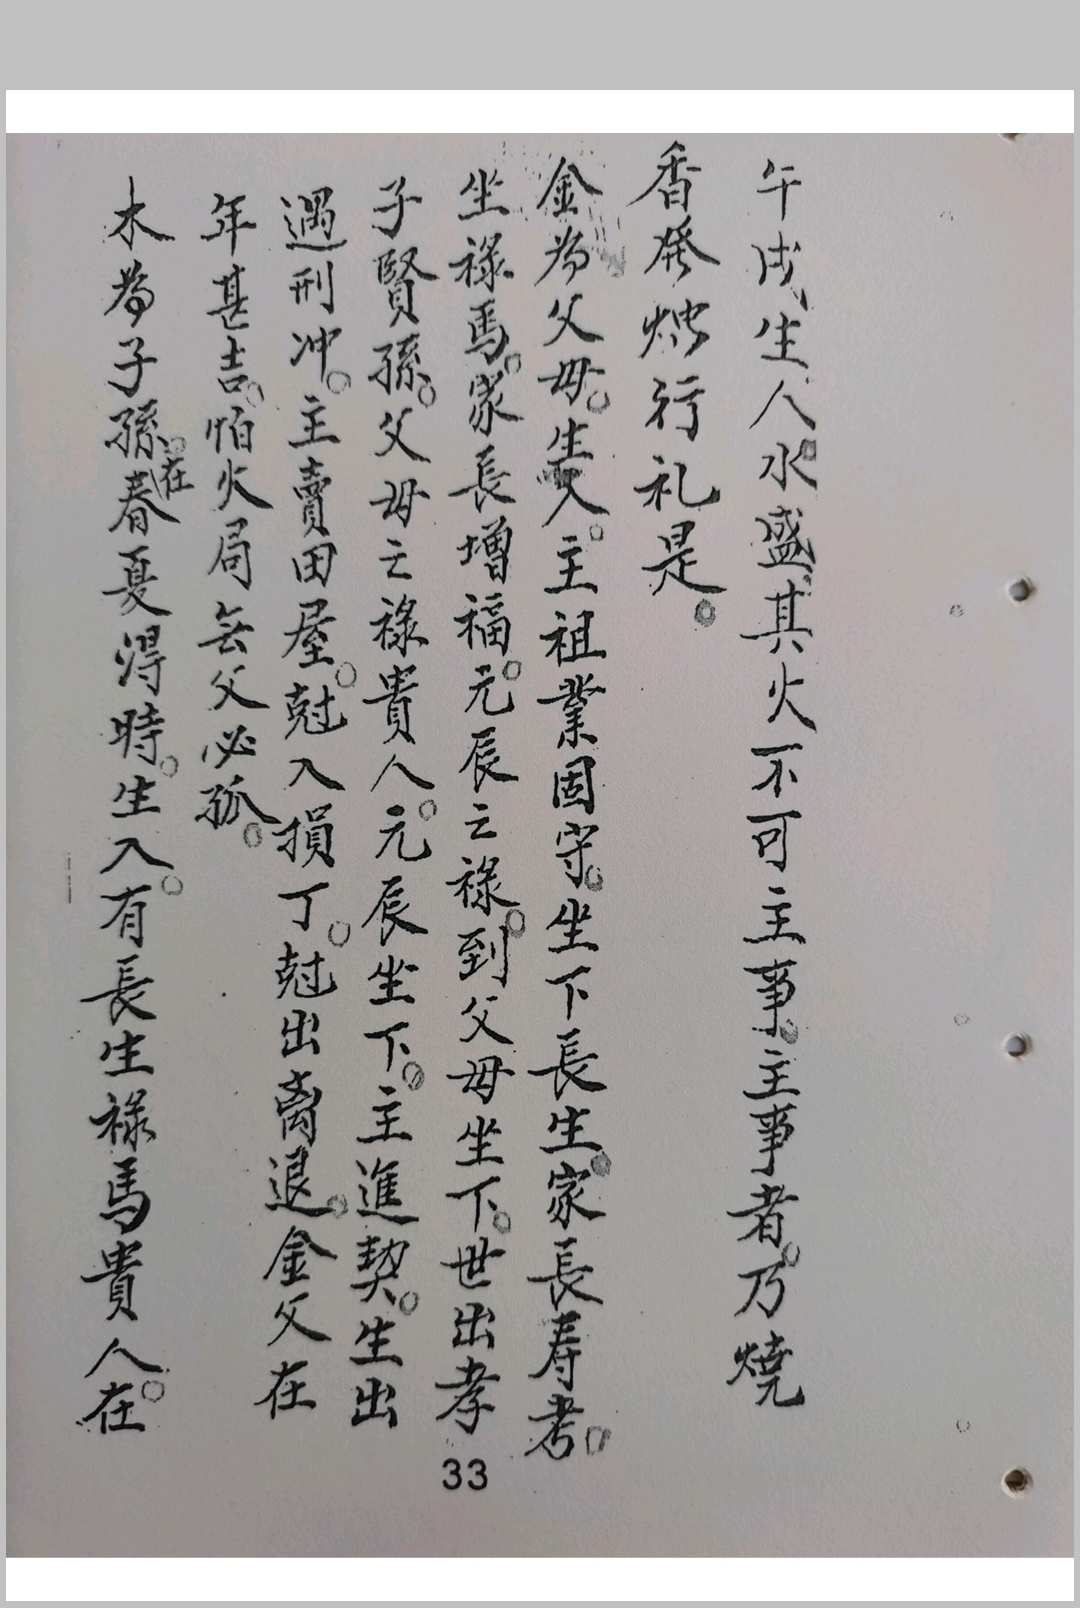 午戌生人水盛其火不可主事主事者。乃燒
香發燭行礼是。
金為父母。生入。主祖業固守。坐下長生家長寿考。
坐祿馬。家長增福。元辰之祿。到父母坐下。世出孝
子賢孫。父母之祿貴人。元辰坐下。主進契。生出
遇刑冲。主賣田屋。尅入損丁。尅出离退。金父在
年甚吉。怕火局無父必孤。
木為子孫。在春夏淂時。生入。有長生祿馬貴人。在
33